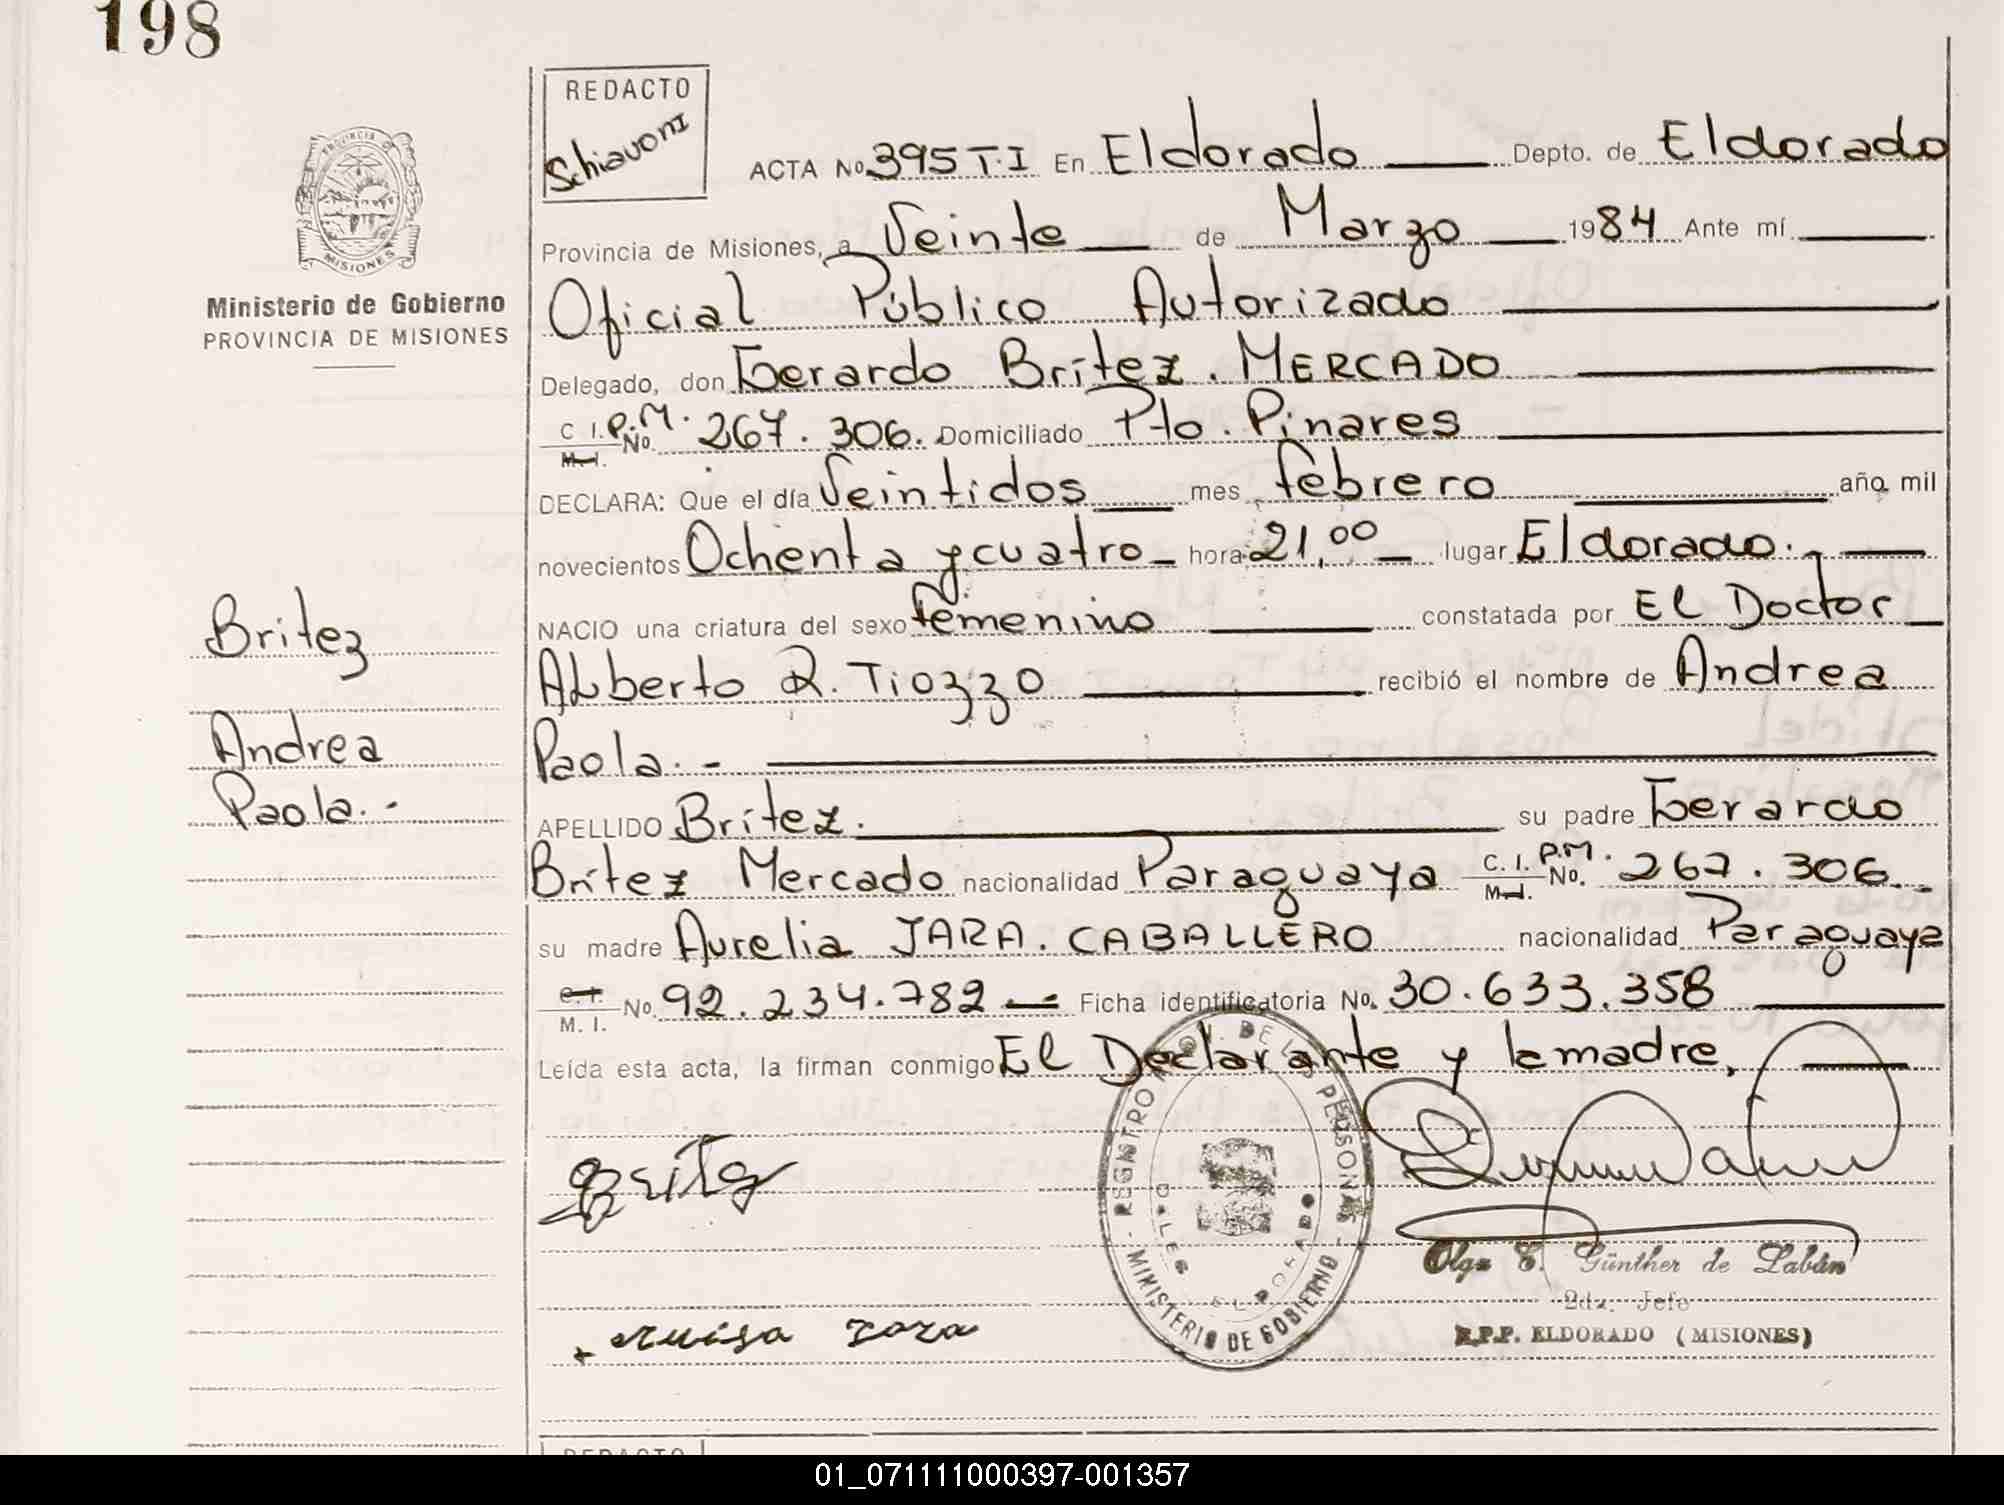 198
REDACTO
Schiavoni
PROVINCIA
MISIONES
Ministerio de Gobierno
PROVINCIA DE MISIONES
ACTA No 395 T.I En Eldorado Depto. de Eldorado
Provincia de Misiones, a Veinte de Marzo 1984 Ante mí
Oficial Público Autorizado
Delegado, don Gerardo Britez. MERCADO
C I. P.M. M.I. No. 267.306. Domiciliado Pto. Pinares
DECLARA: Que el día Veintidos mes febrero año mil
novecientos Ochenta y cuatro hora 21,00 lugar Eldorado.-
NACIO una criatura del sexo femenino constatada por El Doctor
ALberto R. Tiozzo recibió el nombre de Andrea
Paola.-
Britez
Andrea
Paola.-
APELLIDO Britez. su padre Gerardo
Britez Mercado nacionalidad Paraguaya C. I. P.M. M.I. No. 267.306.-
su madre Aurelia JARA. CABALLERO nacionalidad Paraguaya
C.I. M. I. No 92.234.782 Ficha identificatoria No. 30.633.358
Leída esta acta, la firman conmigo El Declarante y la madre,
Britez
REGISTRO DE LAS PERSONAS
MINISTERIO DE GOBIERNO
ELDORADO
Olga E. Günther de Labán
2da. Jefe
R.P.P. ELDORADO (MISIONES)
REDACTO
01_071111000397-001357